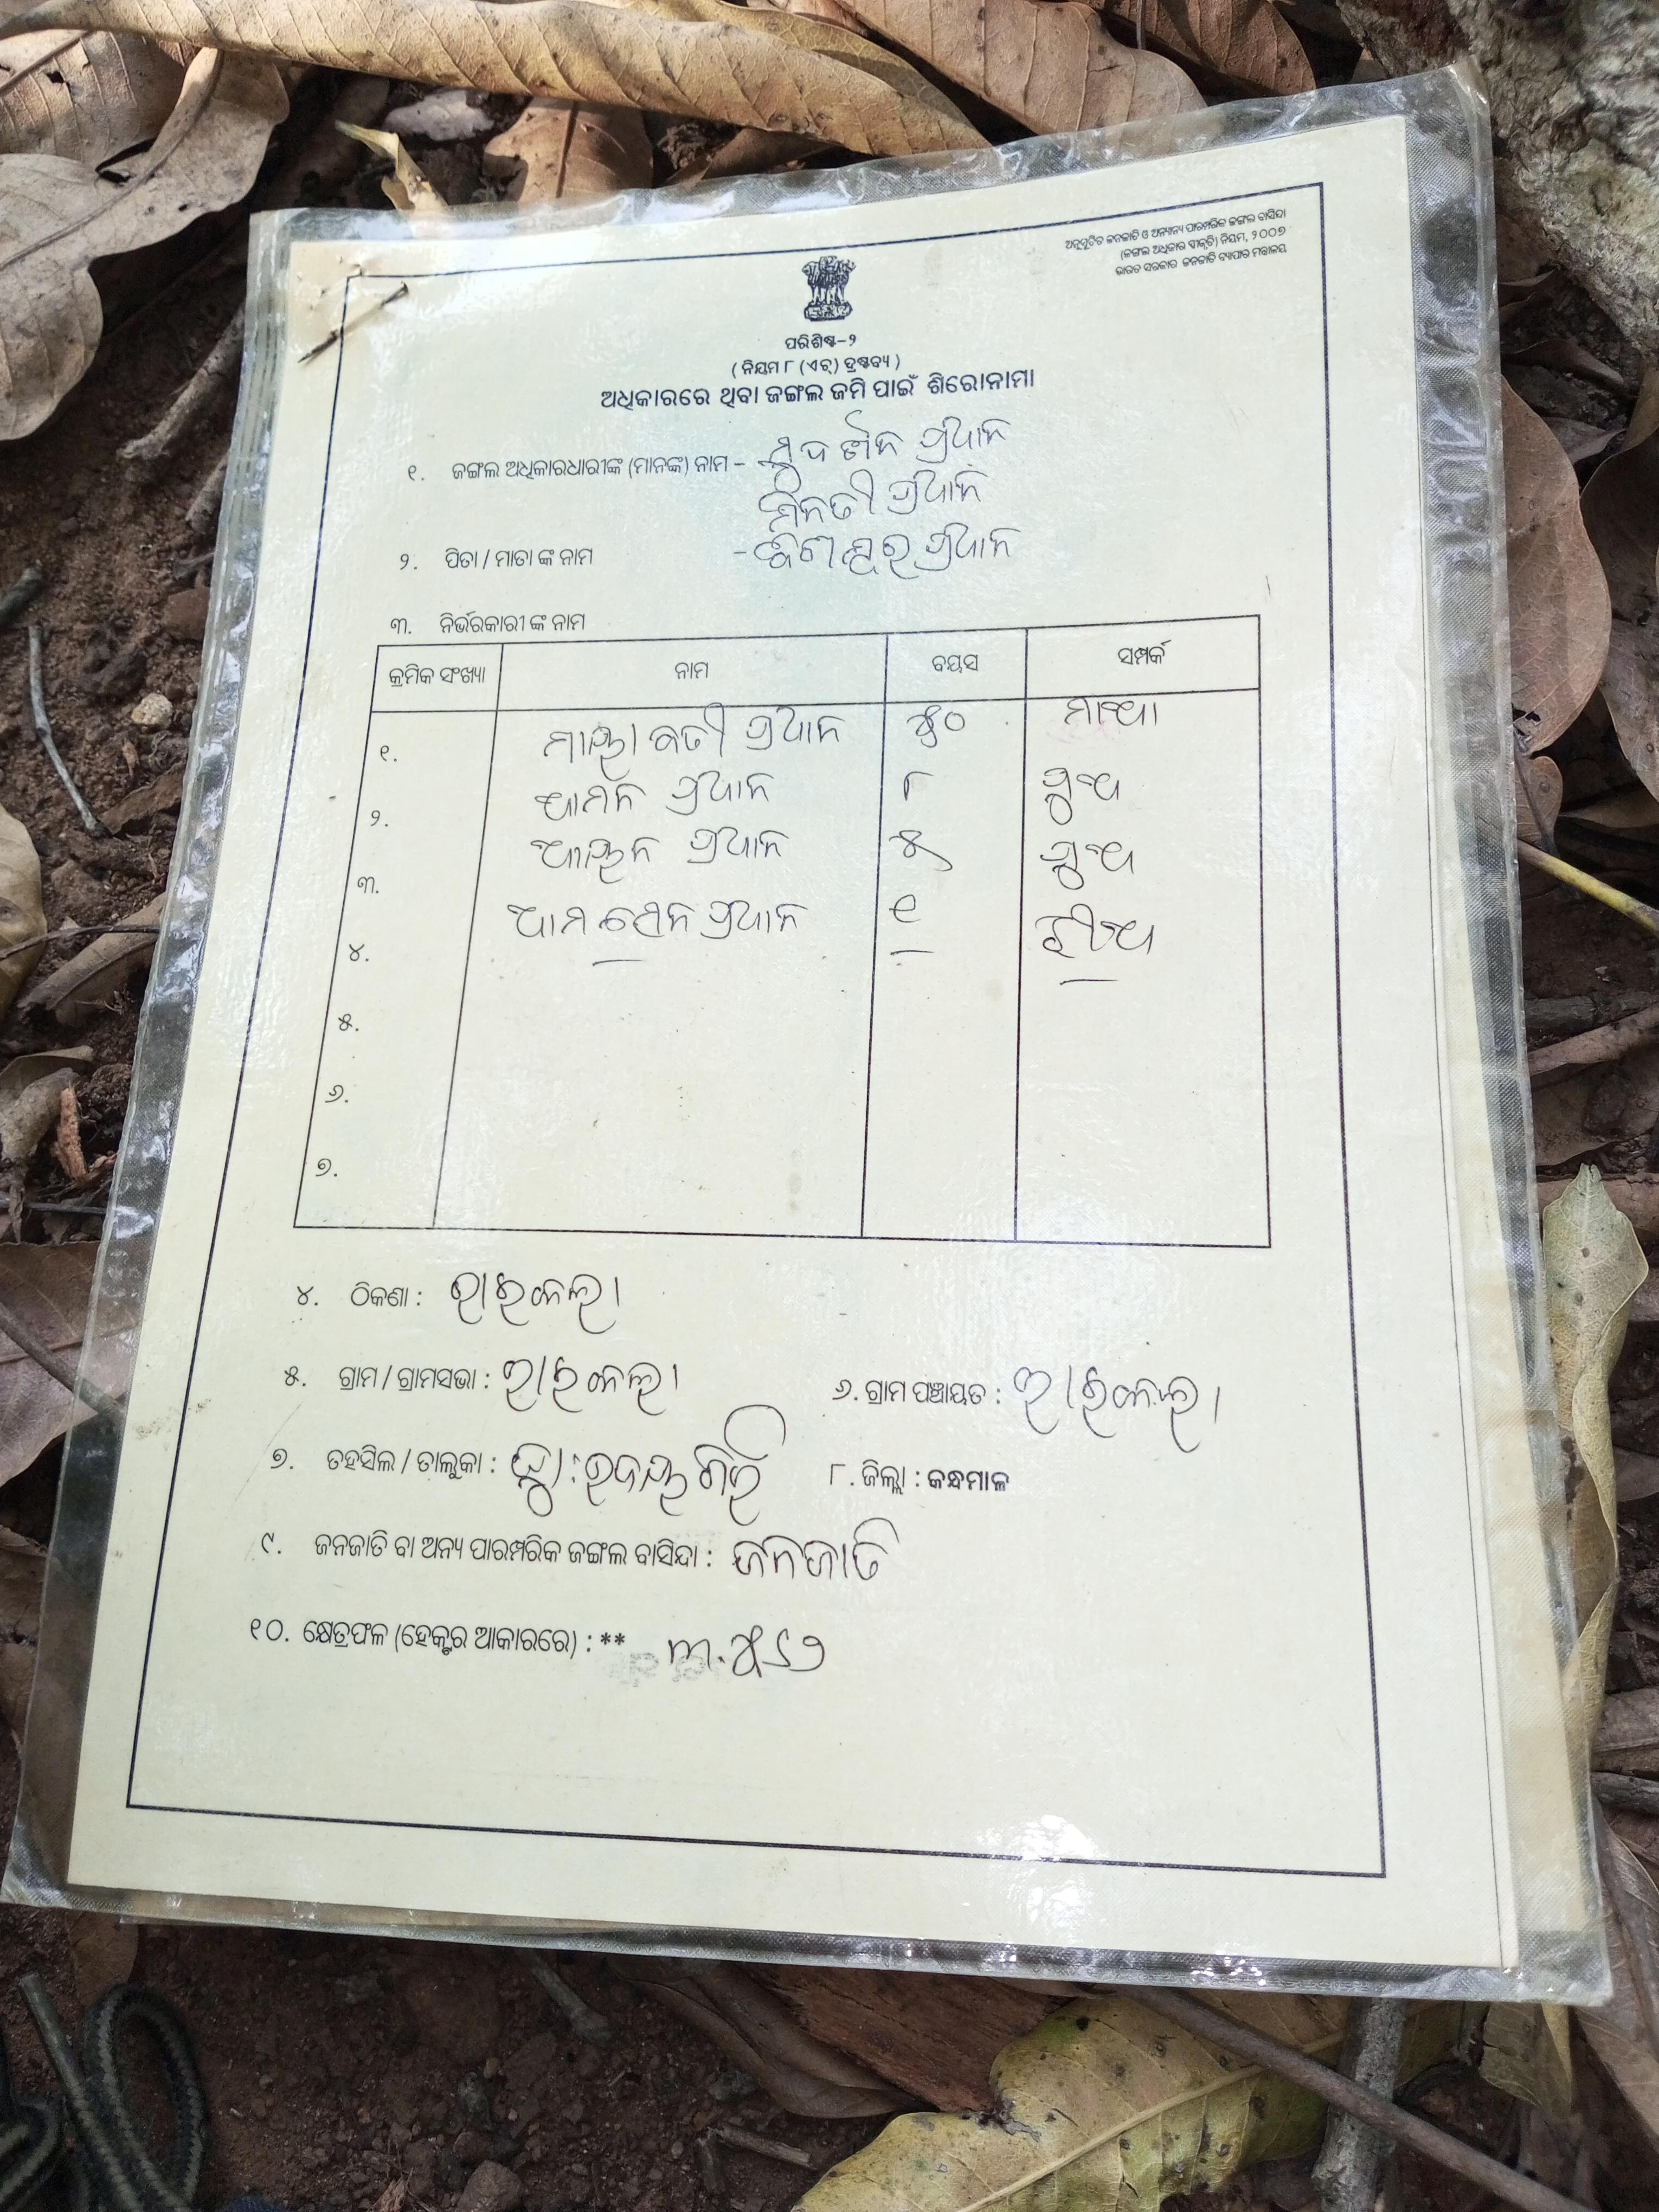 ଅନୁସୂଚିତ ଜନଜାତି ଓ ଅନ୍ୟାନ୍ୟ ପାରମ୍ପରିକ ଜଙ୍ଗଲ ବାସିନ୍ଦା
(ଜଙ୍ଗଲ ଅଧିକାର ସ୍ୱୀକୃତି) ନିୟମ, ୨୦୦୭
ଭାରତ ସରକାର ଜନଜାତି ବ୍ୟାପାର ମନ୍ତ୍ରାଳୟ
ପରିଶିଷ୍ଟ-୨
( ନିୟମ ୮ (ଏଚ୍) ଦ୍ରଷ୍ଟବ୍ୟ )
ଅଧିକାରରେ ଥିବା ଜଙ୍ଗଲ ଜମି ପାଇଁ ଶିରୋନାମା
୧. ଜଙ୍ଗଲ ଅଧିକାରଧାରୀଙ୍କ (ମାନଙ୍କ) ନାମ - ସୁଦର୍ଶନ ପ୍ରଧାନ
ମିନତୀ ପ୍ରଧାନ
୨. ପିତା / ମାତା ଙ୍କ ନାମ - ପ୍ରଧାନ
୩. ନିର୍ଭରକାରୀ ଙ୍କ ନାମ
କ୍ରମିକ ସଂଖ୍ୟା ନାମ ବୟସ ସମ୍ପର୍କ
୧. ମାୟାବତୀ ପ୍ରଧାନ ୫୦ ମାଆ
୨. ଆମନ ପ୍ରଧାନ ୮ ପୁଅ
୩. ଆୟନ ପ୍ରଧାନ ୫ ପୁଅ
୪. ପ୍ରଧାନ ୧ ଝିଅ
୫.
୬.
୭.
୪. ଠିକଣା : ରାଇକଲା
୫. ଗ୍ରାମ / ଗ୍ରାମସଭା : ରାଇକଲା ୬. ଗ୍ରାମ ପଞ୍ଚାୟତ : ରାଇକଲା
୭. ତହସିଲ / ତାଲୁକା : ଉଦୟଗିରି ୮. ଜିଲ୍ଲା : କନ୍ଧମାଳ
୯. ଜନଜାତି ବା ଅନ୍ୟ ପାରମ୍ପରିକ ଜଙ୍ଗଲ ବାସିନ୍ଦା : ଜନଜାତି
୧୦. କ୍ଷେତ୍ରଫଳ (ହେକ୍ଟର ଆକାରରେ) : **